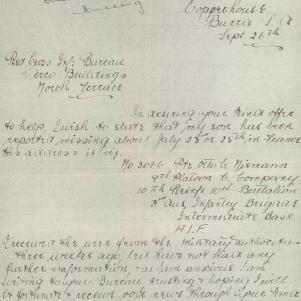 Copperhouse
Burra S. A
Sept 26th
Red Cross Inf: Bureau
Verco Buildings
North Terrace
In desiring your kind offer
to help I wish to state that my son has been
reported missing about July 23rd or 25th in France
His address is
No 3066 Pte Otto C Niemann
9th Platoon C Company
10th Reinfs 10th Battalion
3rd Aus, Infantry Brigade
Intermediate Base
A.I.F
I received the wire from the Military authorities
three weeks ago, but have not had any
further information, as I am anxious I am
writing to your Bureau trusting & hoping I will
be fortunate & receive good news through your kind